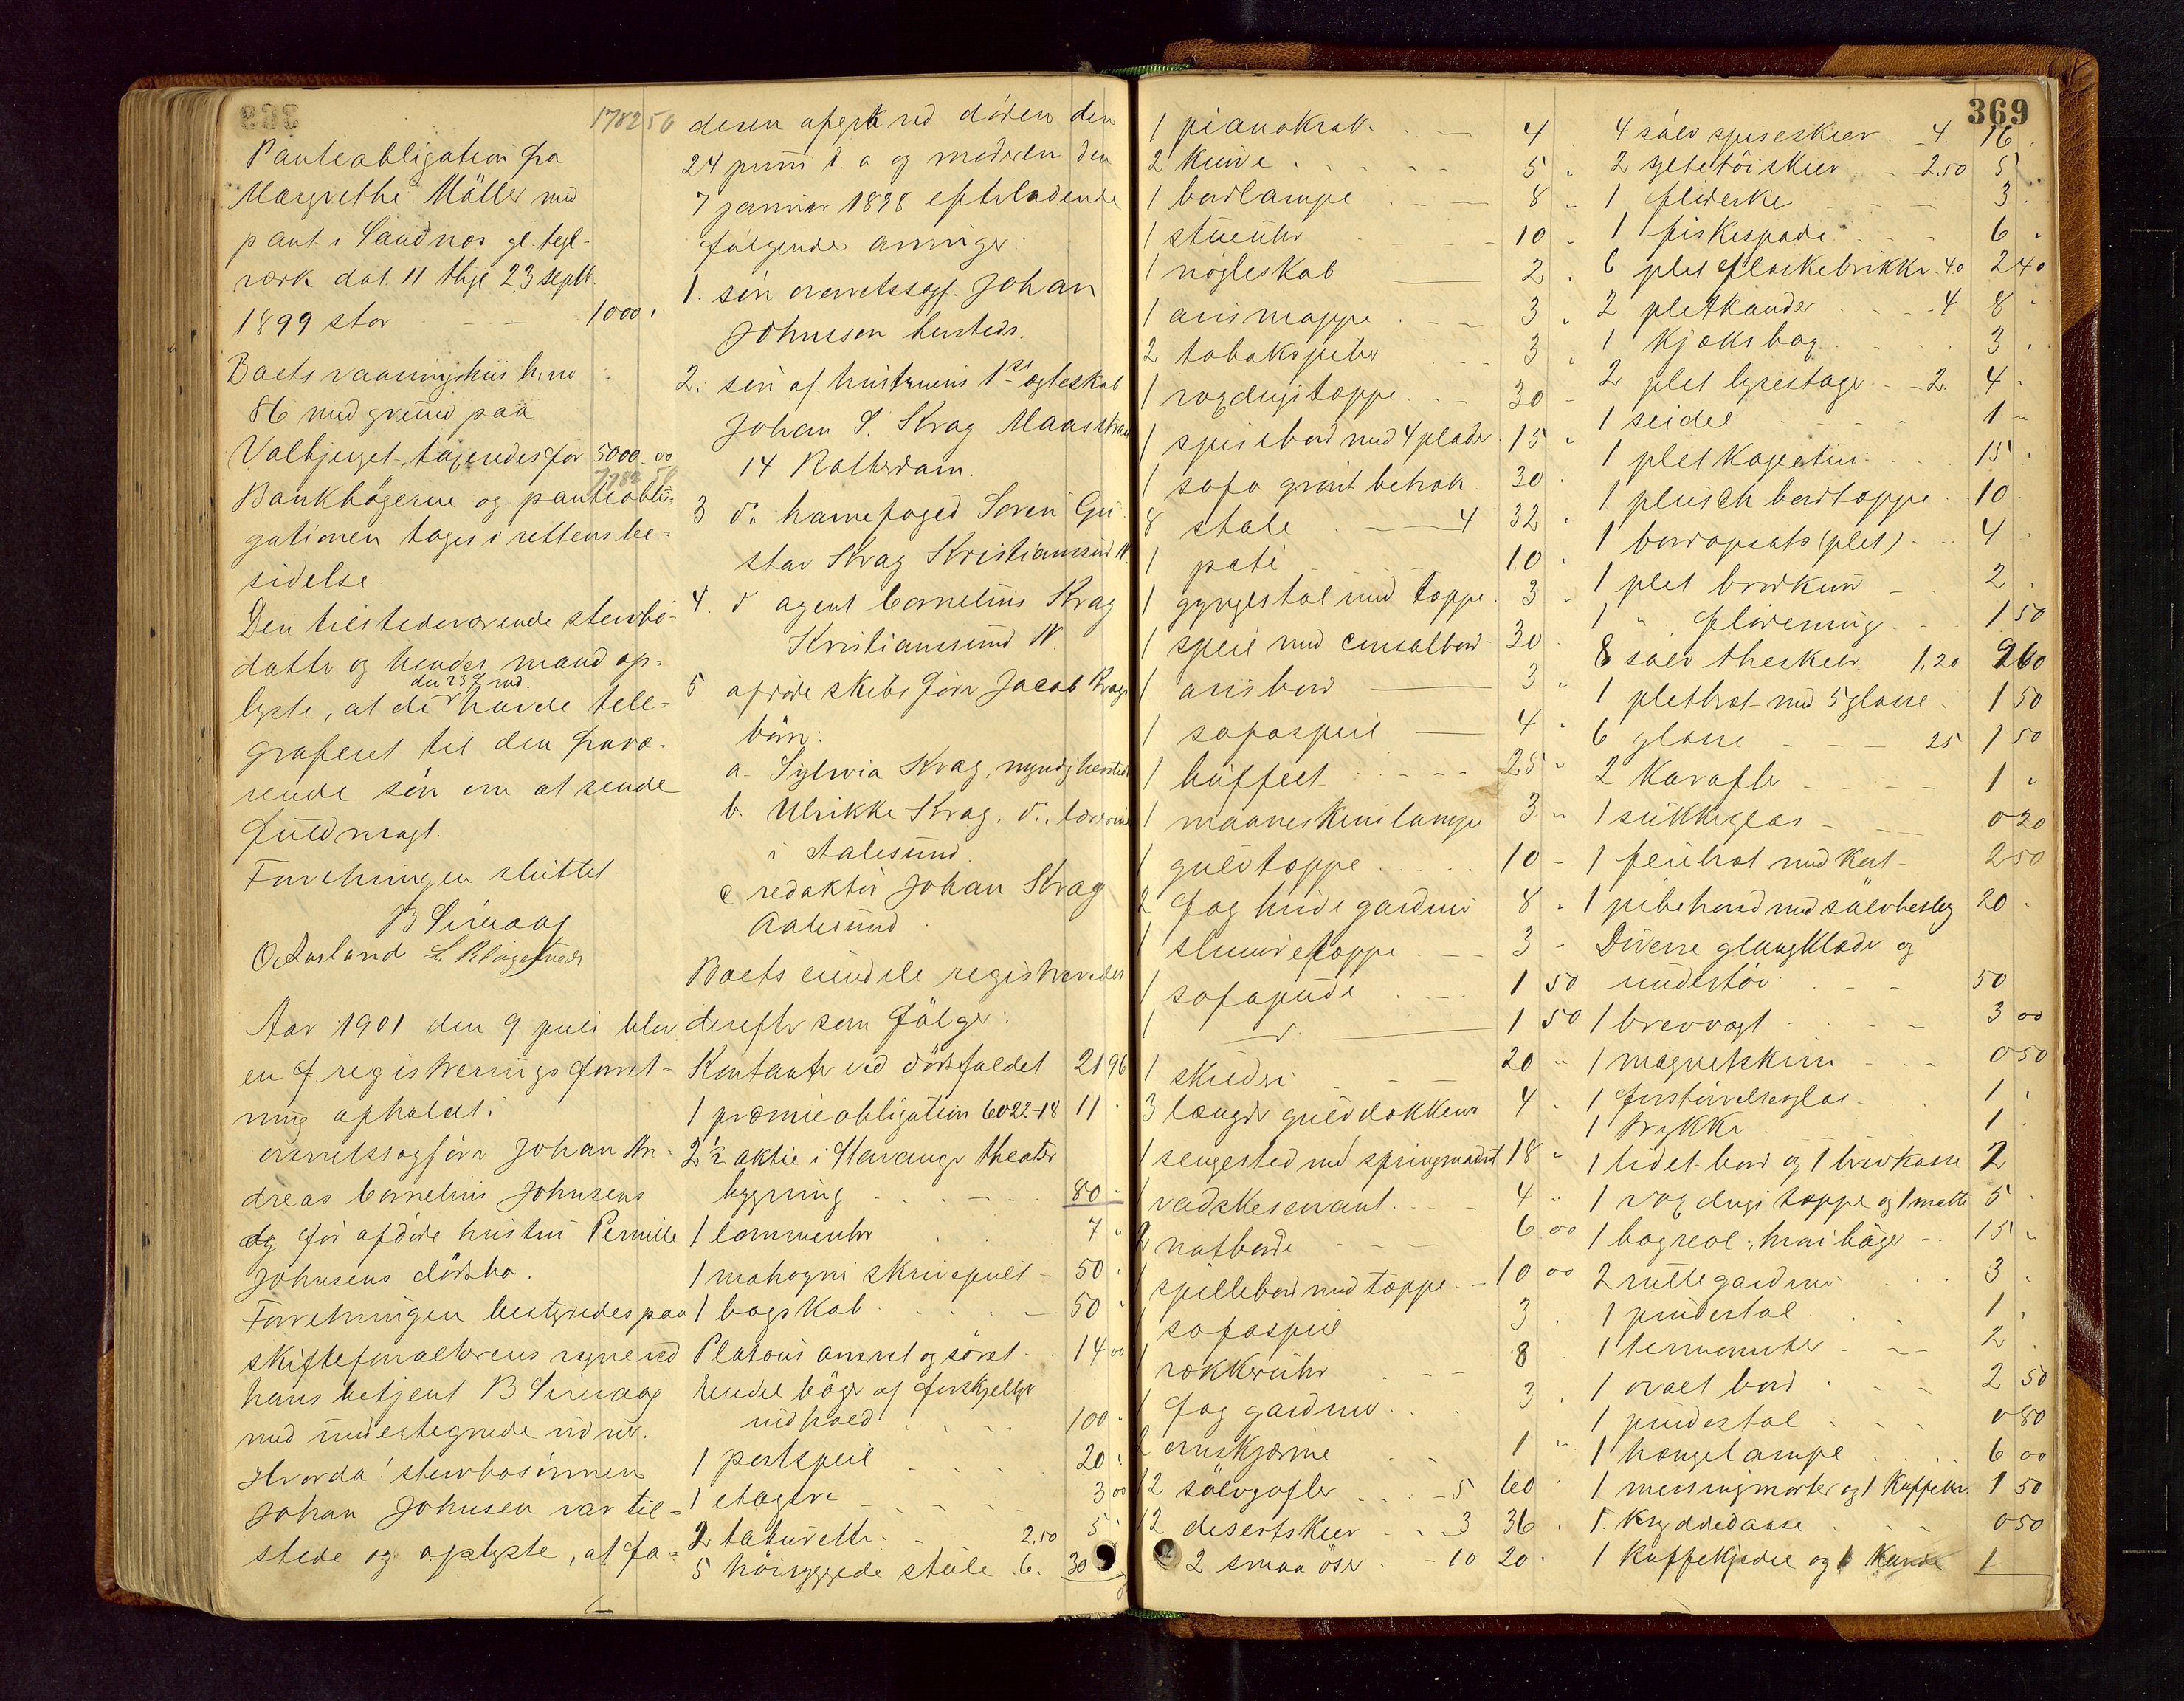 1782 50
Panteobligation fra
Margrethe Möller med
pant i Sandnæs gl. tegl-
værk dat. 11 thgl. 23 septb.
1899 stor - - 1000 "
Boets vaaningshus h. no
86 med grund paa
Valbjerget, taxeredes for 5000.00
7782 50
Bankbøgerne og panteobli-
gationen toges i rettens be-
sidelse.
Den tilstedeværende stervbo-
datter og hendes mand op-
lyste, at de den 23 d. md. havde tele-
graferet til den fravæ-
rende søn om at sende
fuldmagt.
Forretningen sluttet
B Sirevaag
O. Aasland
Aar 1901 den 9 juli blev
en registreringsforret-
ning afholdt i
overretssagfører Johan An-
dreas Cornelius Johnsens
og før afdøde hustru Pernille
Johnsens dødsbo.
Forretningen bestyredes paa
skifteforvalterens vegne ved
hans betjent B Sirevaag
med undertegnede vidner.
Hvorda! stervbosønnen
Johan Johnsen var til-
stede og oplyste, at fa-
deren afgik ved døden den
24 juni d. a og moderen den
7 januar 1898 efterladende
følgende arvinger:
1. søn overretssagf. Johan
Johnsen hersteds.
2. søn af hustruens 1ste ægteskab
Johan S. Krag Maasstraat
14 Rotterdam.
3 do havnefoged Søren Gu-
stav Krag Kristianssund N.
4. do agent Cornelius Krag
Kristianssund N.
5 afdøde skibsfører Jacob Krags
børn:
a. Sylwia Krag, myndig hersteds
b. Ulrikke Krag, do., lærerinde
i Aalesund.
c redaktør Johan Krag
Aalesund.
Boets eiendele registreredes
derefter som følger:
Kontanter ved dødsfaldet 21 96
1 præmieobligation 6022-18 11 "
2 1/2 aktie i Stavanger theater
bygning - - - 80 -
1 lommeuhr 7 "
1 mahogni skrivepult - 50 "
1 bogskab - 50 "
Platons amret og søret - 14 00
Endel bøger af forskjelligt
indhold 100 "
1 portspeil 20 "
1 etagere 3 00
2 taburetter 2,50 5 "
5 høiryggede stole 6. 30
369
1 pianokrak - 4
2 kurve 5 "
1 bordlampe 8 "
1 stueuhr 10 -
1 nøgleskab 2 "
1 avismappe 3 "
2 tobakspiber 3 "
1 voxdugstæppe 30 -
1 spisebord med 4 plader 15 "
1 sofa grønt betræk 30 "
8 stole - 4 32 "
1 pate 10 "
1 gyngestol med tæppe 3 "
1 speil med consolbord 30
1 avisbord 3 "
1 sofaspeil 4 "
1 buffeet 25 "
1 maaneskinslampe 3 "
1 gulvtæppe 10 -
2 fag hvide gardiner 8 "
1 slumretæppe 3 -
1 sofapude 1 50
1 do 1 50
1 skilderi 20 "
3 længder gulvdækken 4 "
1 sengested med springmadrat 18 "
1 vadskeservant 4 "
2 natborde 6 00
1 spillebord med tæppe 10 00
1 sofaspeil 3 "
1 vækkeruhr 8
1 fag gardiner 3 "
2 ovnskjærme 1 "
12 sølvgafler 5 60 "
12 desertskeer 3 36 "
2 smaa øser - 10 20 "
4 sølv spiseskeer 4. 16 "
2 syltetøiskeer 2,50 5
1 flødeske 3 "
1 fiskespade 6 "
6 plet flaskebrikker 40 2 40
2 pletkander 4 8 "
1 kjøksbog 3 "
2 plet lysestager 2 4 "
1 seidel 1 "
1 plet kageetui 15 "
1 plusch bordtæppe 10
1 bordopsats (plet) 4 "
1 plet brødkurv 2 "
1 " flødemug 1 50
8 sølv theskeer 1,20 9 60
1 pletbræt med 5 glasse 1 50
6 glasse 25 1 50
2 karafler 1 "
1 sukkerglas 0 20
1 feiebræt med kost 2 50
1 pibehoved med sølvbeslag 20 "
Diverse gangklæder og
undertøi 50
1 brevvægt 3 00
1 magnetskrin 0 50
1 forstørrelsesglas 1 "
1 krykke 1 "
1 lidet bord og 1 brødkasse 2
1 voxdugs tæppe og 1 matte 5 "
1 bogreol, hvori bøger 15 "
2 rullegardiner 3 "
1 pindestol 1 "
1 termometer 2 "
1 ovalt bord 2 50
1 pindestol 0 80
1 hængelampe 6 00
1 messingmorter og 1 kaffekv. 1 50
1 krydderdaase 0 50
1 kaffekjedel og 1 kande 1